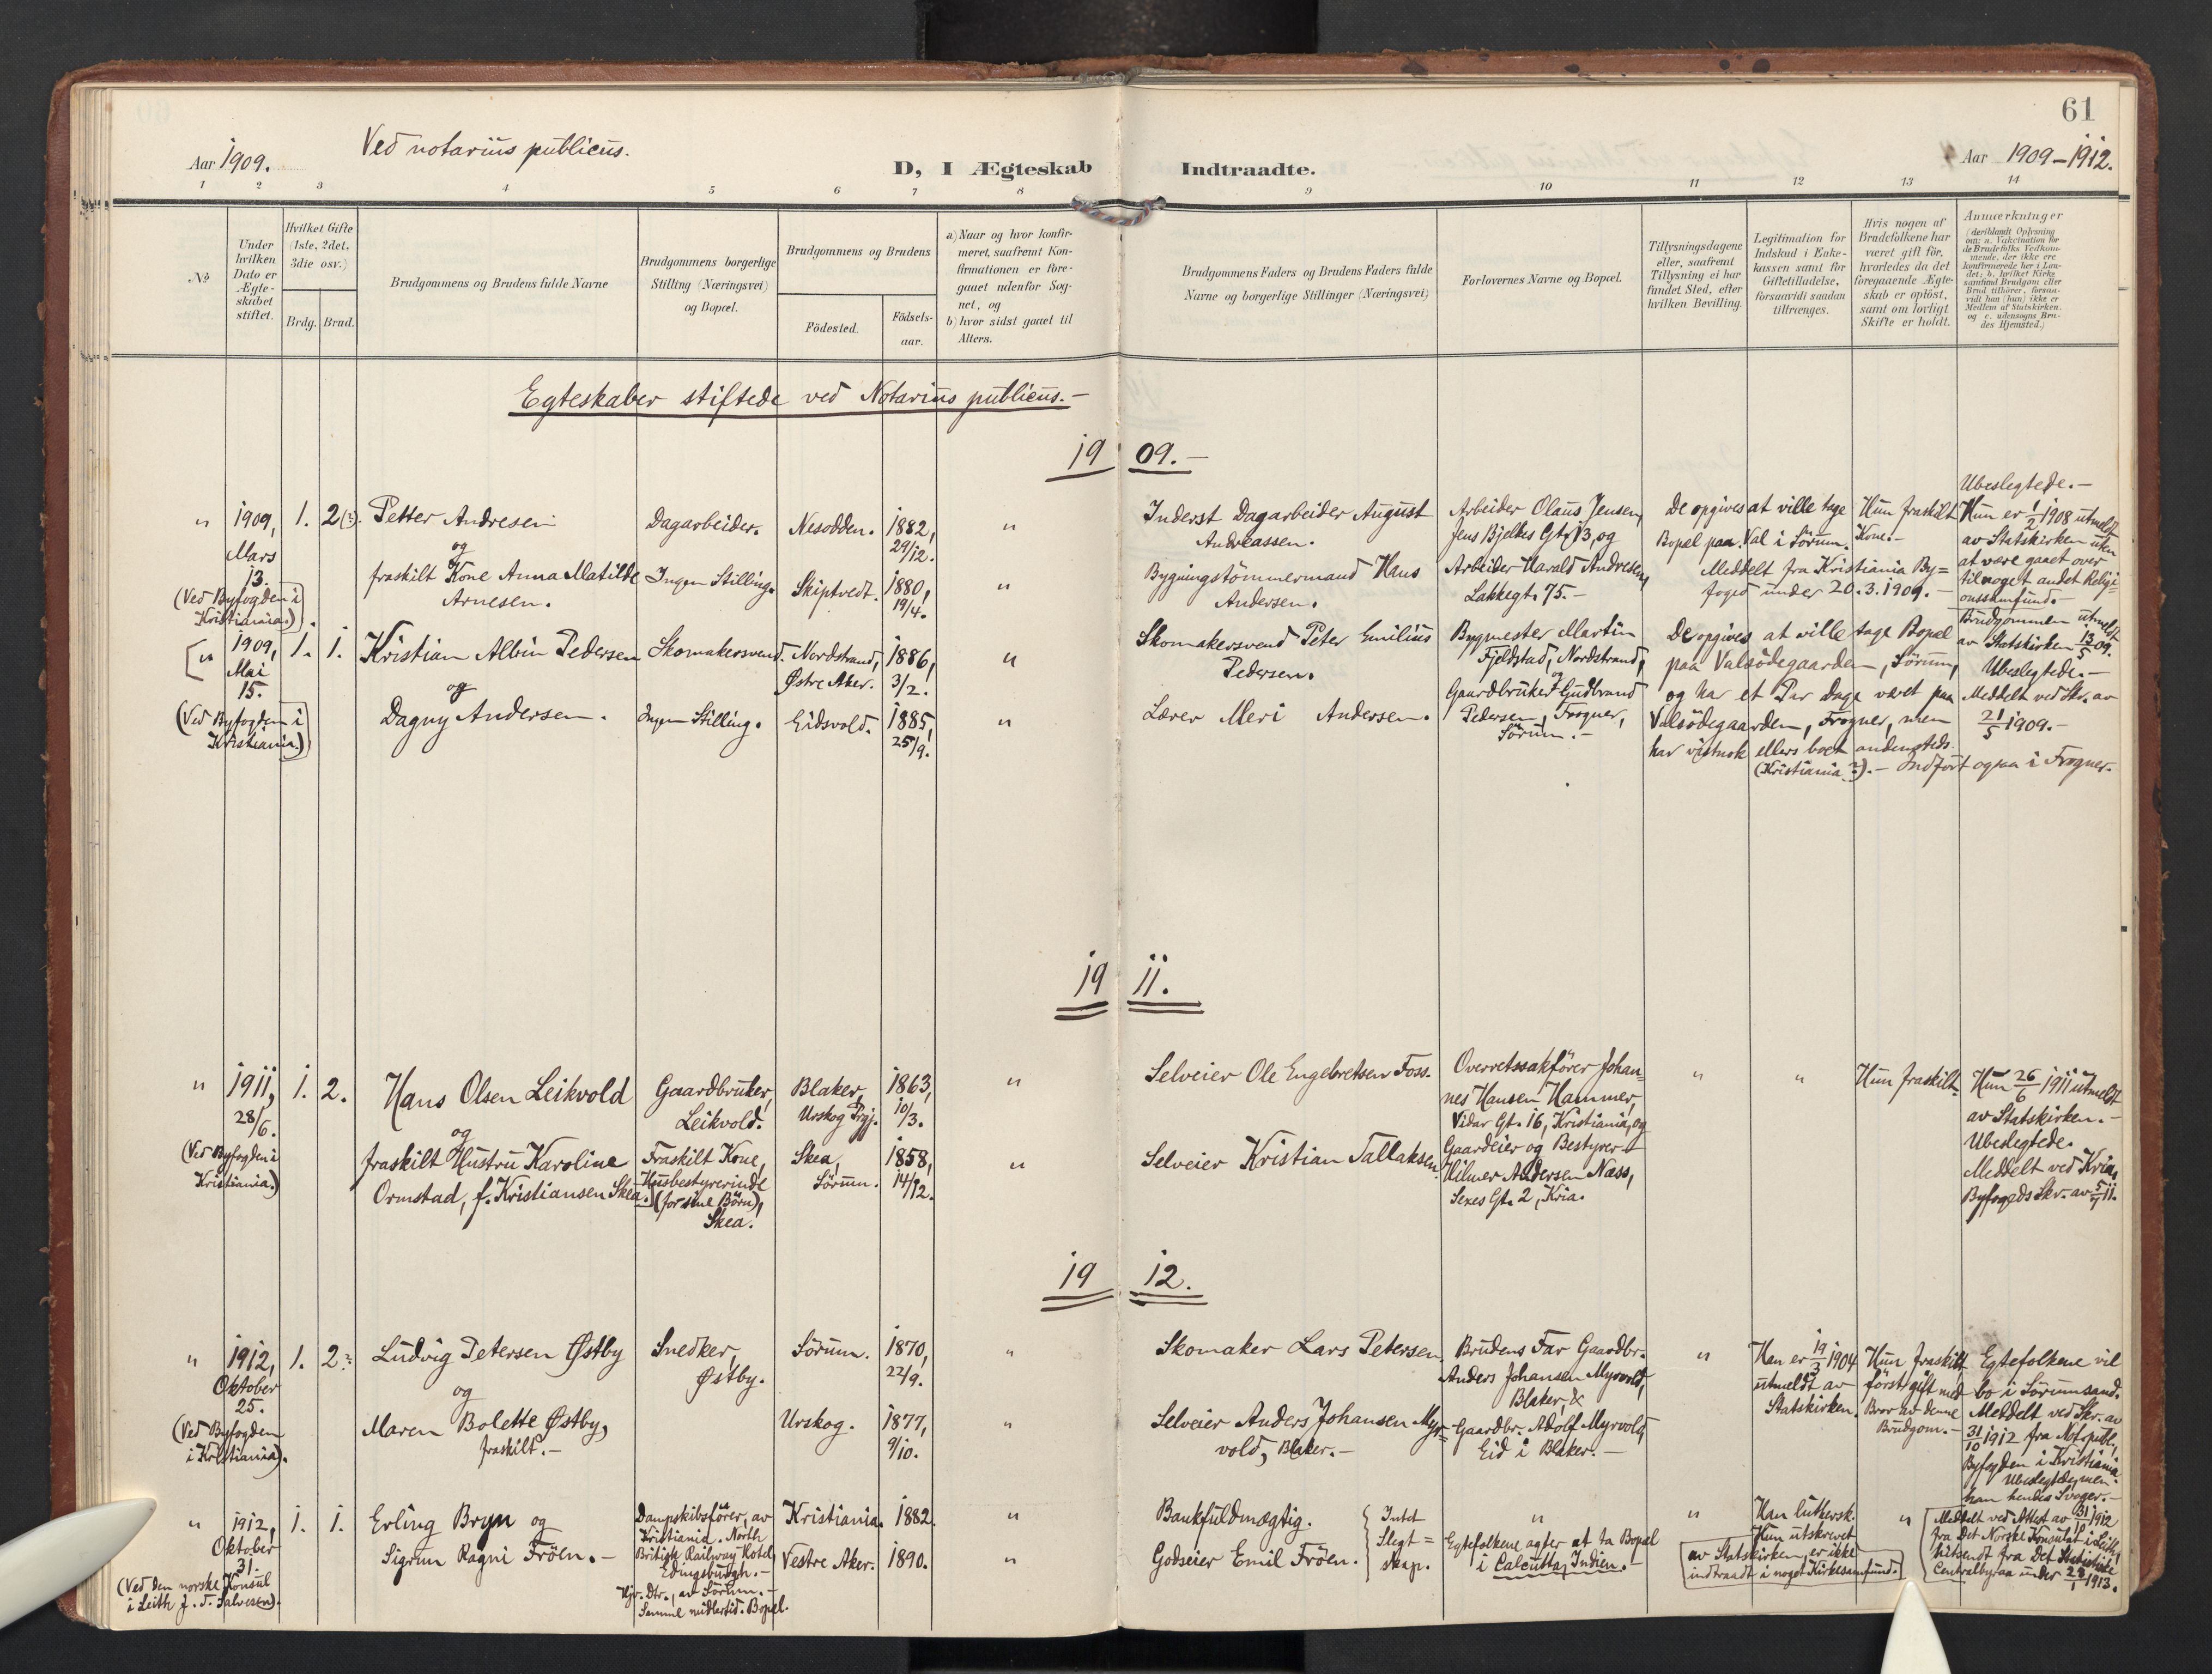 61
Aar 1909.
Ved notarius publicus.
D, I Ægteskab Indtraadte.
Aar 1909-1912.
1 2 3 4 5 6 7 8 9 10 11 12 13 14
No
Under hvilken Dato er Ægteskabet stiftet.
Hvilket Gifte (1ste, 2det, 3die osv.)
Brdg. Brud.
Brudgommens og Brudens fulde Navne
Brudgommens borgerlige Stilling (Næringsvei) og Bopæl.
Brudgommens og Brudens
Födested.
Födselsaar.
a) Naar og hvor konfirmeret, saafremt Konfirmationen er foregaaet udenfor Sognet, og
b) hvor sidst gaaet til Alters.
Brudgommens Faders og Brudens Faders fulde Navne og borgerlige Stillinger (Næringsvei)
Forlovernes Navne og Bopæl.
Tillysningsdagene eller, saafremt Tillysning ei har fundet Sted, efter hvilken Bevilling.
Legitimation for Indskud i Enkekassen samt for Giftetilladelse, forsaavidt saadan tiltrænges.
Hvis nogen af Brudefolkene har været gift för, hvorledes da det foregaaende Ægteskab er oplöst, samt om lovligt Skifte er holdt.
Anmærkninger
(deriblandt Oplysning om: a. Vakcination for de Brudefolks Vedkommende, der ikke ere konfirmerede her i Landet; b. hvilket Kirkesamfund Brudgom eller Brud tilhörer, forsaavidt han (hun) ikke er Medlem af Statskirken, og c. udensogns Brudes Hjemsted.)
Egteskaber stiftede ved Notarius publicus.-
19 09.-
" 1909, Mars 13.
(Ved Byfogden i Kristiania.)
1. 2(?).
Petter Andresen
og
fraskilt Kone Anna Matilde
Arnesen.
Dagarbeider.
Ingen Stilling.
Nesodden.
Skiptvedt.
1882, 29/12.
1880, 19/4.
"
"
Inderst Dagarbeider August
Andreassen.
Bygningstömmermand Hans
Andersen.
Arbeider Olaus Jensen,
Jens Bjelkes Gt. 13, og
Arbeider Harald Andresen,
Lakkegt. 75.-
De opgives at ville tage
Bopæl paa Val i Sörum.
Meddelt fra Kristiania By=
foged under 20.3.1909.-
Hun fraskilt
Kone.-
Ubeslegtede.-
Hun er 1/2 1908 utmeldt
av Statskirken uten
at være gaaet over
til noget andet Religi=
onssamfund.-
" 1909, Mai 15.
(Ved Byfogden i Kristiania.)
1. 1.
Kristian Albin Pedersen
og
Dagny Andersen.
Skomakersvend.
Ingen Stilling.
Nordstrand,
Østre Aker.
Eidsvold.
1886, 3/2.
1885, 25/9.
"
"
Skomakersvend Peter Emilius
Pedersen.
Lærer Meri Andersen.
Bygmester Martin
Fjeldstad, Nordstrand,
og
Gaardbruker Gudbrand
Pedersen, Frogner,
Sörum.-
De opgives at ville tage Bopæl
paa Valsödegaarden, Sörum,
og har et Par Dage været paa
Valsödegaarden, Frogner, men
har vistnok ellers boet andensteds
(Kristiania?).- Indfört ogsaa i Frogner.
Brudgommen utmeldt
av Statskirken 13/5 09.
Ubeslegtede.-
Meddelt ved Skr. av
21/5 1909.-
19 11.
" 1911, 28/6.
(Ved Byfogden i Kristiania.)
1. 2.
Hans Olsen Leikvold
og
fraskilt Hustru Karoline
Ormstad, f. Kristiansen Skea.
Gaardbruker,
Leikvold.
Fraskilt Kone,
Husbestyrerinde
(for sine Börn),
Skea.
Blaker,
Urskog Prgj.
Skea,
Sörum.
1863, 10/3.
1858, 14/12.
"
"
Selveier Ole Engebretsen Foss.
Selveier Kristian Tallaksen.
Overretssakförer Johan=
nes Hansen Hammer,
Vidar Gt. 16, Kristiania, og
Gaardeier og Bestyrer
Hilmer Andersen Næss,
Sexes Gt. 2, Kria.
"
"
Hun fraskilt.
Hun 26/6 1911 utmeldt
av Statskirken.-
Ubeslegtede.
Meddelt ved Kria.
Byfogeds Skr. av 5/7 11.
19 12.
" 1912, Oktober 25.
(Ved Byfogden i Kristiania).
1. 2?
Ludvig Petersen Østby
og
Maren Bolette Østby,
fraskilt.-
Snedker,
Østby.
Sörum.
Urskog.
1870, 22/9.
1877, 9/10.
"
"
Skomaker Lars Petersen.
Selveier Anders Johansen Myr=
vold, Blaker.-
Brudens Far Gaardbr.
Anders Johansen Myrvold,
Blaker, &
Gaardbr. Adolf Myrvold,
Eid i Blaker.-
"
Han er 19/3 1904
utmeldt av
Statskirken.
Hun fraskilt,
först gift med
Bror av denne
Brudgom.-
Egtefolkene vil
bo i Sörumsand.
Meddelt ved Skr. av
31/10 1912 fra Not. publ.,
Byfogden i Kristiania.
Ubeslegtede, men
han hendes Svoger.-
" 1912, Oktober 31.
(Ved den norske Konsul
i Leith J. T. Salvesen).
1. 1.
Erling Bryn og
Sigrun Ragni Fröen.-
Dampskibsförer, av
Kristiania. North
British Railway Hotel,
Edingsburgh.-
Hjv. Dtr., av Sörum.-
Samme midlertid. Bopæl.
Kristiania.
Vestre Aker.
1882.
1890.
"
"
Bankfuldmægtig.
Godseier Emil Fröen.
Intet
Slegt=
skap.
"
Egtefolkene agter at ta Bopæl
i Calcutta, Indien.
"
Han luthersk.
Hun utskrevet
av Statskirken, er ikke
indtraadt i noget Kirkesamfund.
"
Meddelt ved Attest av 31/10 1912
fra Det Norske Konsulat i Leith,
hitsendt fra Det Statistiske
Centralbyraa under 28/1 1913.